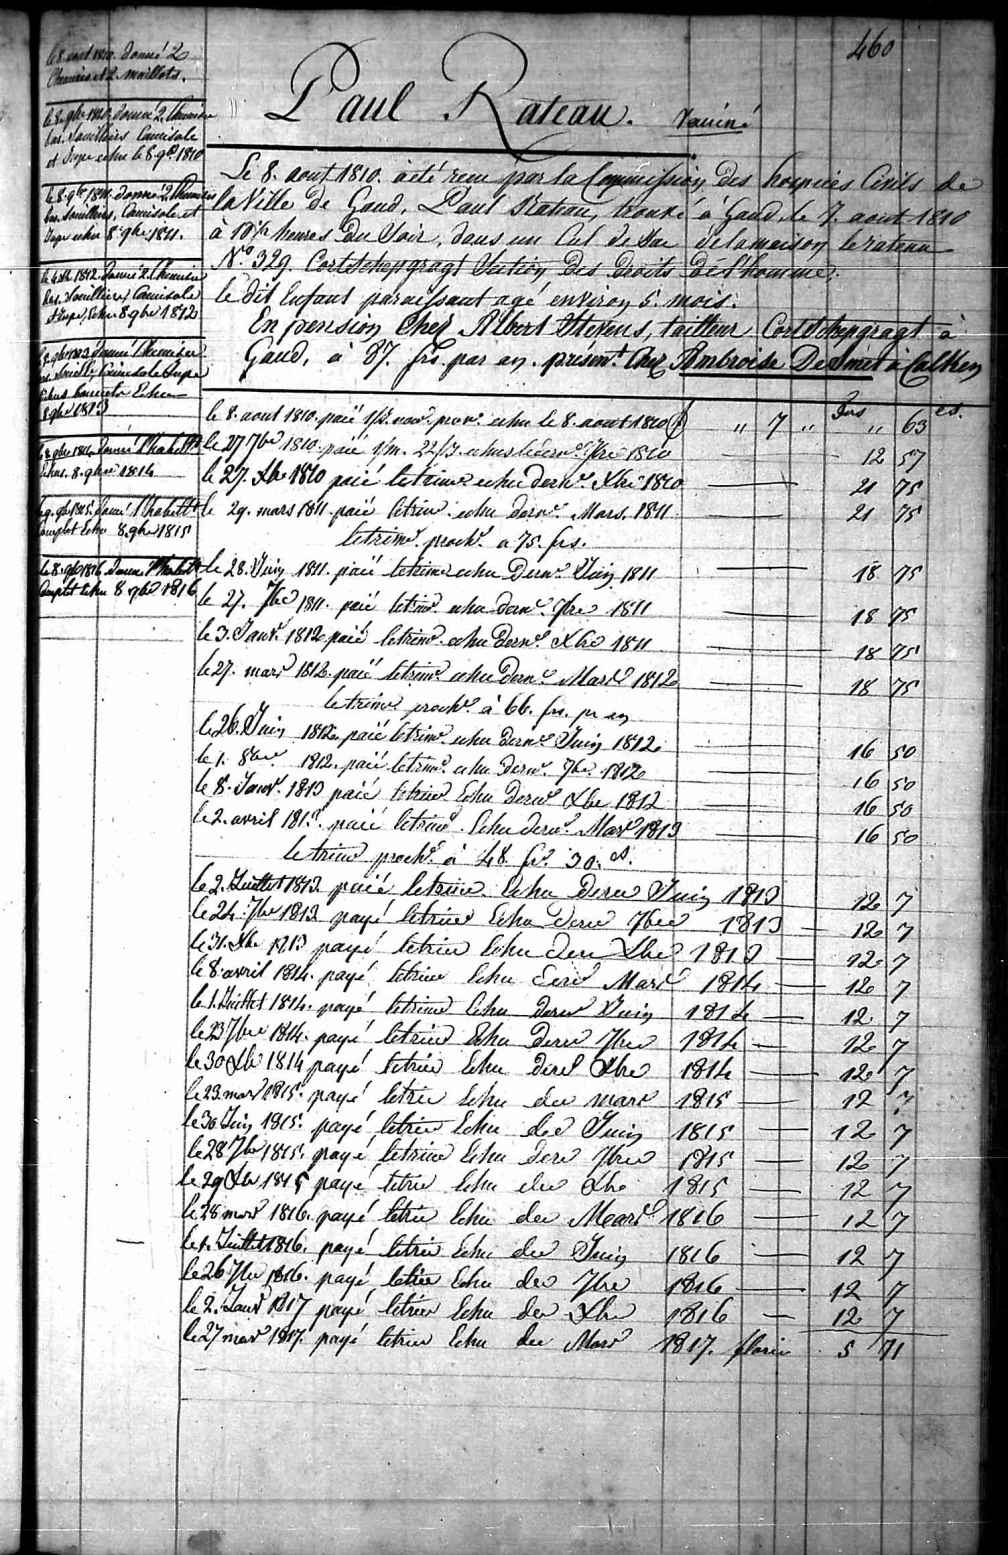 460
Paul Rateau. vacciné
le 8 aout 1810. donné 2
Chemises et 2 maillots.
le 8. 9bre 1810. donné 2 Chemises
bas. Souilliers Camisole
et Jupe echu le 8. 9bre 1810
le 8. 9bre 1811. donné 2 Chemises
bas. Souilliers, Camisole et
Jupe echu 8. 9bre 1811.
1812 donné 2 Chemises
bas. Souilliers Camisole
et Jupe, Echu 8 9bre 1812
9bre 1813 donné Chemises
Camisole Jupe
Echu
8 9bre 1813
le 8. 9bre 1814 donné l'habillt
Echu. 8. 9bre 1814
le 9. 9bre 1815. donné l'habillt
Complet Echu 8. 9bre 1815
le 8. 9bre 1816 donné l'habillt
Complet Echu 8 9bre 1816
Le 8. aout 1810. a été reçu par la Commission des hospices Civils de
la Ville de Gand, Paul Rateau, trouvé à Gand, le 7. aout 1810
à 10 ½ heures du Soir, dans un Cul de Sac de la maison le rateau
No 329. Cortschepgragt Section des Droits de l'homme,
le dit Enfant paraissant agé environ 5. mois.
En pension Chez Albert Stevens, tailleur Cortschepgragt à
Gand, à 87. frs. par an. présent. Chez Ambroise De Smet à Calken
le 8. aout 1810. paié echu le 8. aout 1810 " 7 " frs " 63 cs.
le 27 7bre 1810. paié 1/m. 22/3. echus le dernr. 7bre 1810 12 57
le 27. Xbre 1810 paié le trime echu dernr. Xbre 1810 21 75
le 29. mars 1811. paié le trim. echu dernr. Mars. 1811 21 75
le trime. procht. a 75. frs.
le 28. Juin 1811. paié le trime echu Dernr. Juin 1811 18 75
le 27. 7bre 1811. paié le trime. echu dernr. 7bre 1811 18 75
le 3. Janvr. 1812 paié le trime. echu dernr. Xbre 1811 18 75
le 27. mars 1812. paié le trime. echu Dernr. Mars 1812 18 75
le trime procht. à 66. frs. pr an
le 26. Juin 1812 paié le trime. echu dernr. Juin 1812 16 50
le 1. 8bre 1812. paié le trime. echu dernr. 7bre. 1812 16 50
le 8. Janvr. 1813 paié le trime Echu dernr. Xbre 1812 16 50
le 2. avril 1813. paié le trime. Echu dernr. Mars 1813 16 50
le trime procht. à 48. frs. 30. cs.
le 2. Juillet 1813. paié le trime. Echu dernr Juin 1813 12 7
le 24. 7bre 1813. payé le trime Echu dernr 7bre 1813 12 7
le 31. Xbre 1813 payé le trim Echu der Xbre 1813 12 7
le 8 avril 1814. payé le trime Echu dernr Mars 1814 12 7
le 1. Juillet 1814. payé le trime Echu dernr Juin 1814 12 7
le 23 7bre 1814. payé le trim Echu dernr 7bre 1814 12 7
le 30 Xbre 1814 payé le trim Echu dernr Xbre 1814 12 7
le 23 mars 1815. payé le trim Echu der mars 1815 12 7
le 30 Juin 1815. payé le trim Echu der Juin 1815 12 7
le 28 7bre 1815. payé le trim Echu dernr 7bre 1815 12 7
le 29 Xbre 1815 payé le trim Echu der Xbre 1815 12 7
le 28 mars 1816. payé le trim Echu der Mars 1816 12 7
le 1. Juillet 1816. payé le trim Echu der Juin 1816 12 7
le 26 7bre 1816. payé le trim Echu der 7bre 1816 12 7
le 2. Janvr 1817 payé le trim Echu der Xbre 1816 12 7
le 27 mars 1817. payé le trim Echu der Mars 1817. florin 5 71